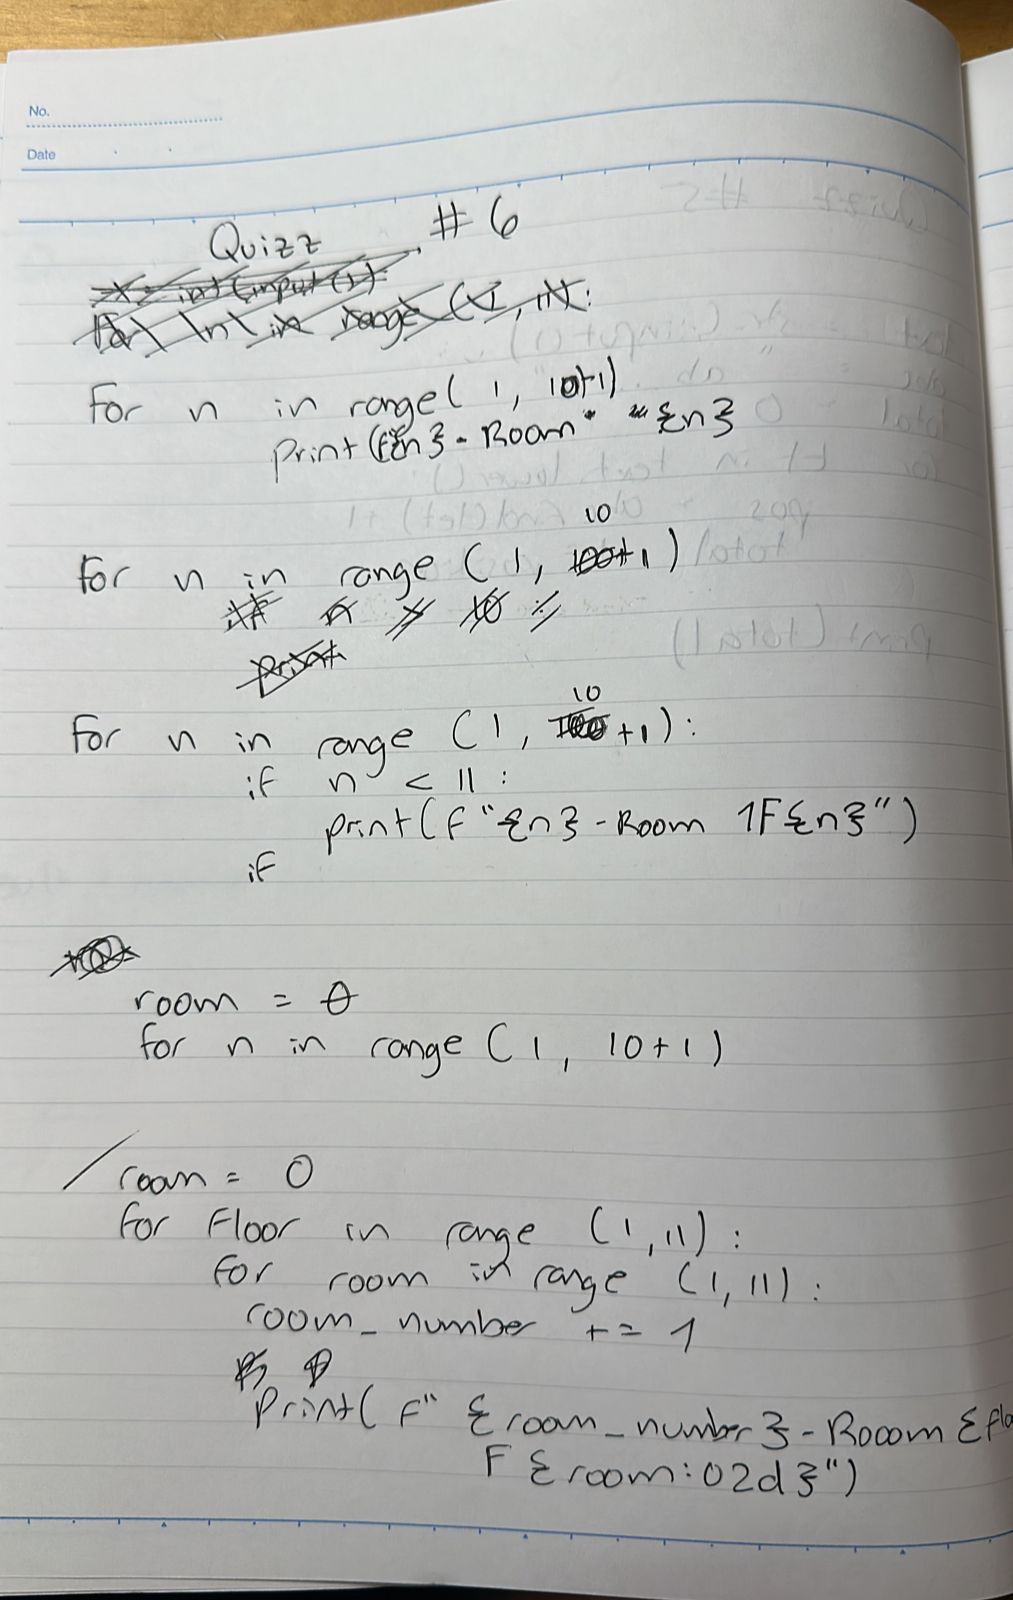 No.
Date
Quizz #6
x = int(input())
for n in range (1, 11):
for n in range( 1, 10+1)
print (f{n} - Room" "{n}
10
for n in range (1, 100+1)
if n > 10 :
print
10
for n in range (1, 100+1):
if n < 11 :
print(f "{n} - Room 1F{n}")
if
room = 0
for n in range (1, 10+1)
/ room = 0
for Floor in range (1,11) :
for room in range (1,11) :
room_number += 1
print( f" {room_number} - Rooom {flo
F {room:02d}")